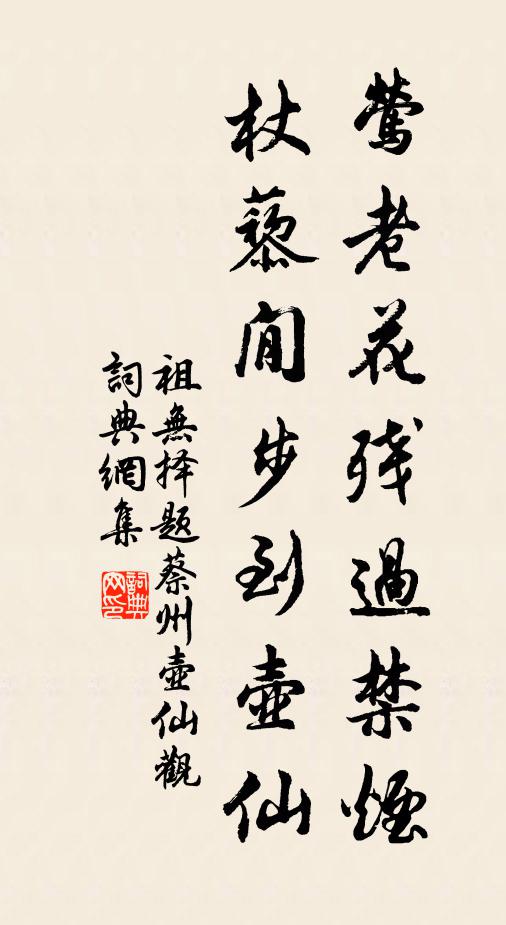 鶯老花残過禁煙
杖藜閒步到壺仙
祖無择題蔡州壺仙觀
詞典網集
詞典
网印